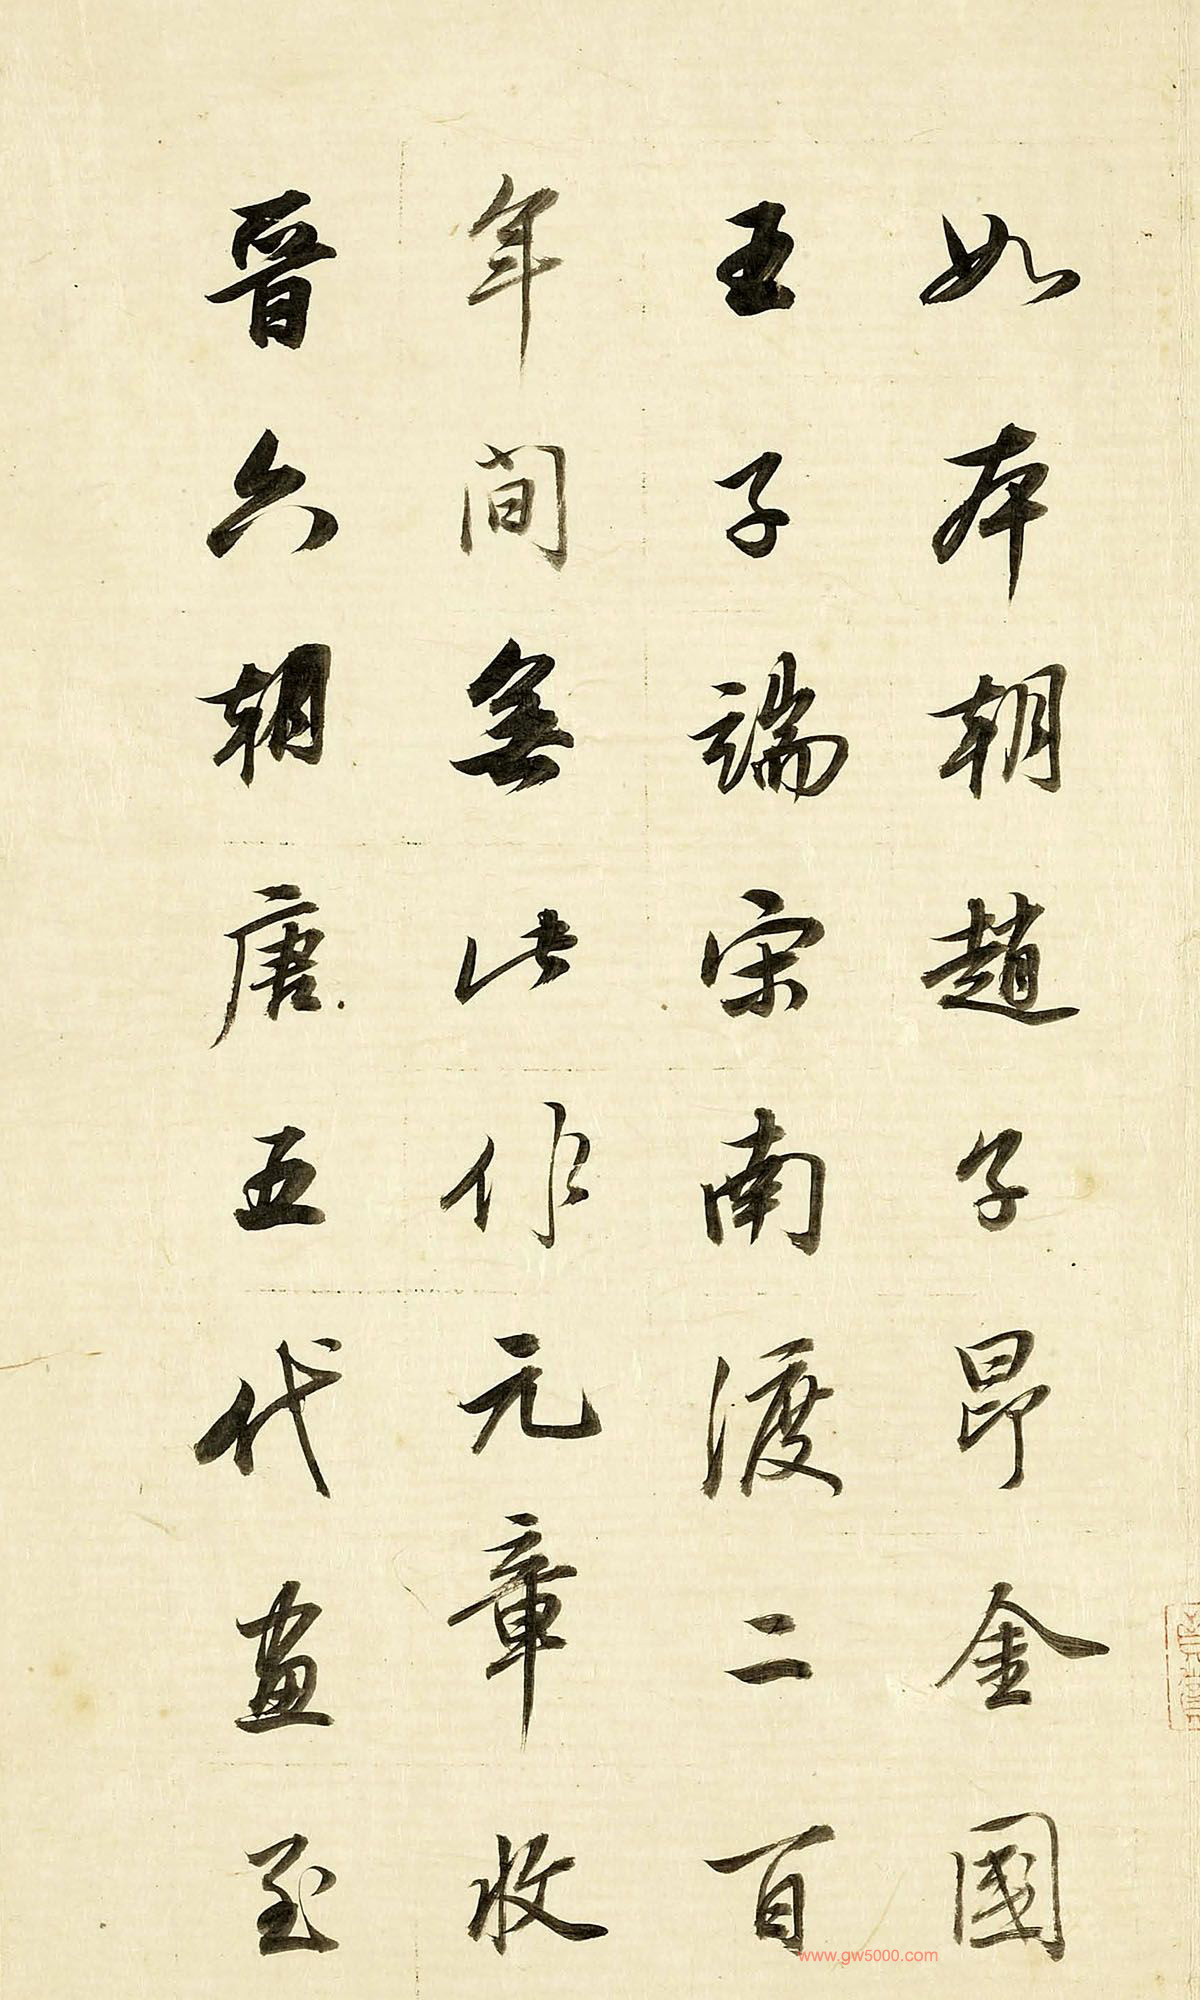 如本朝趙子昂金國
王子端宋南渡二百
年間無此作元章收
晉六朝唐五代畫至
www.gw5000.com